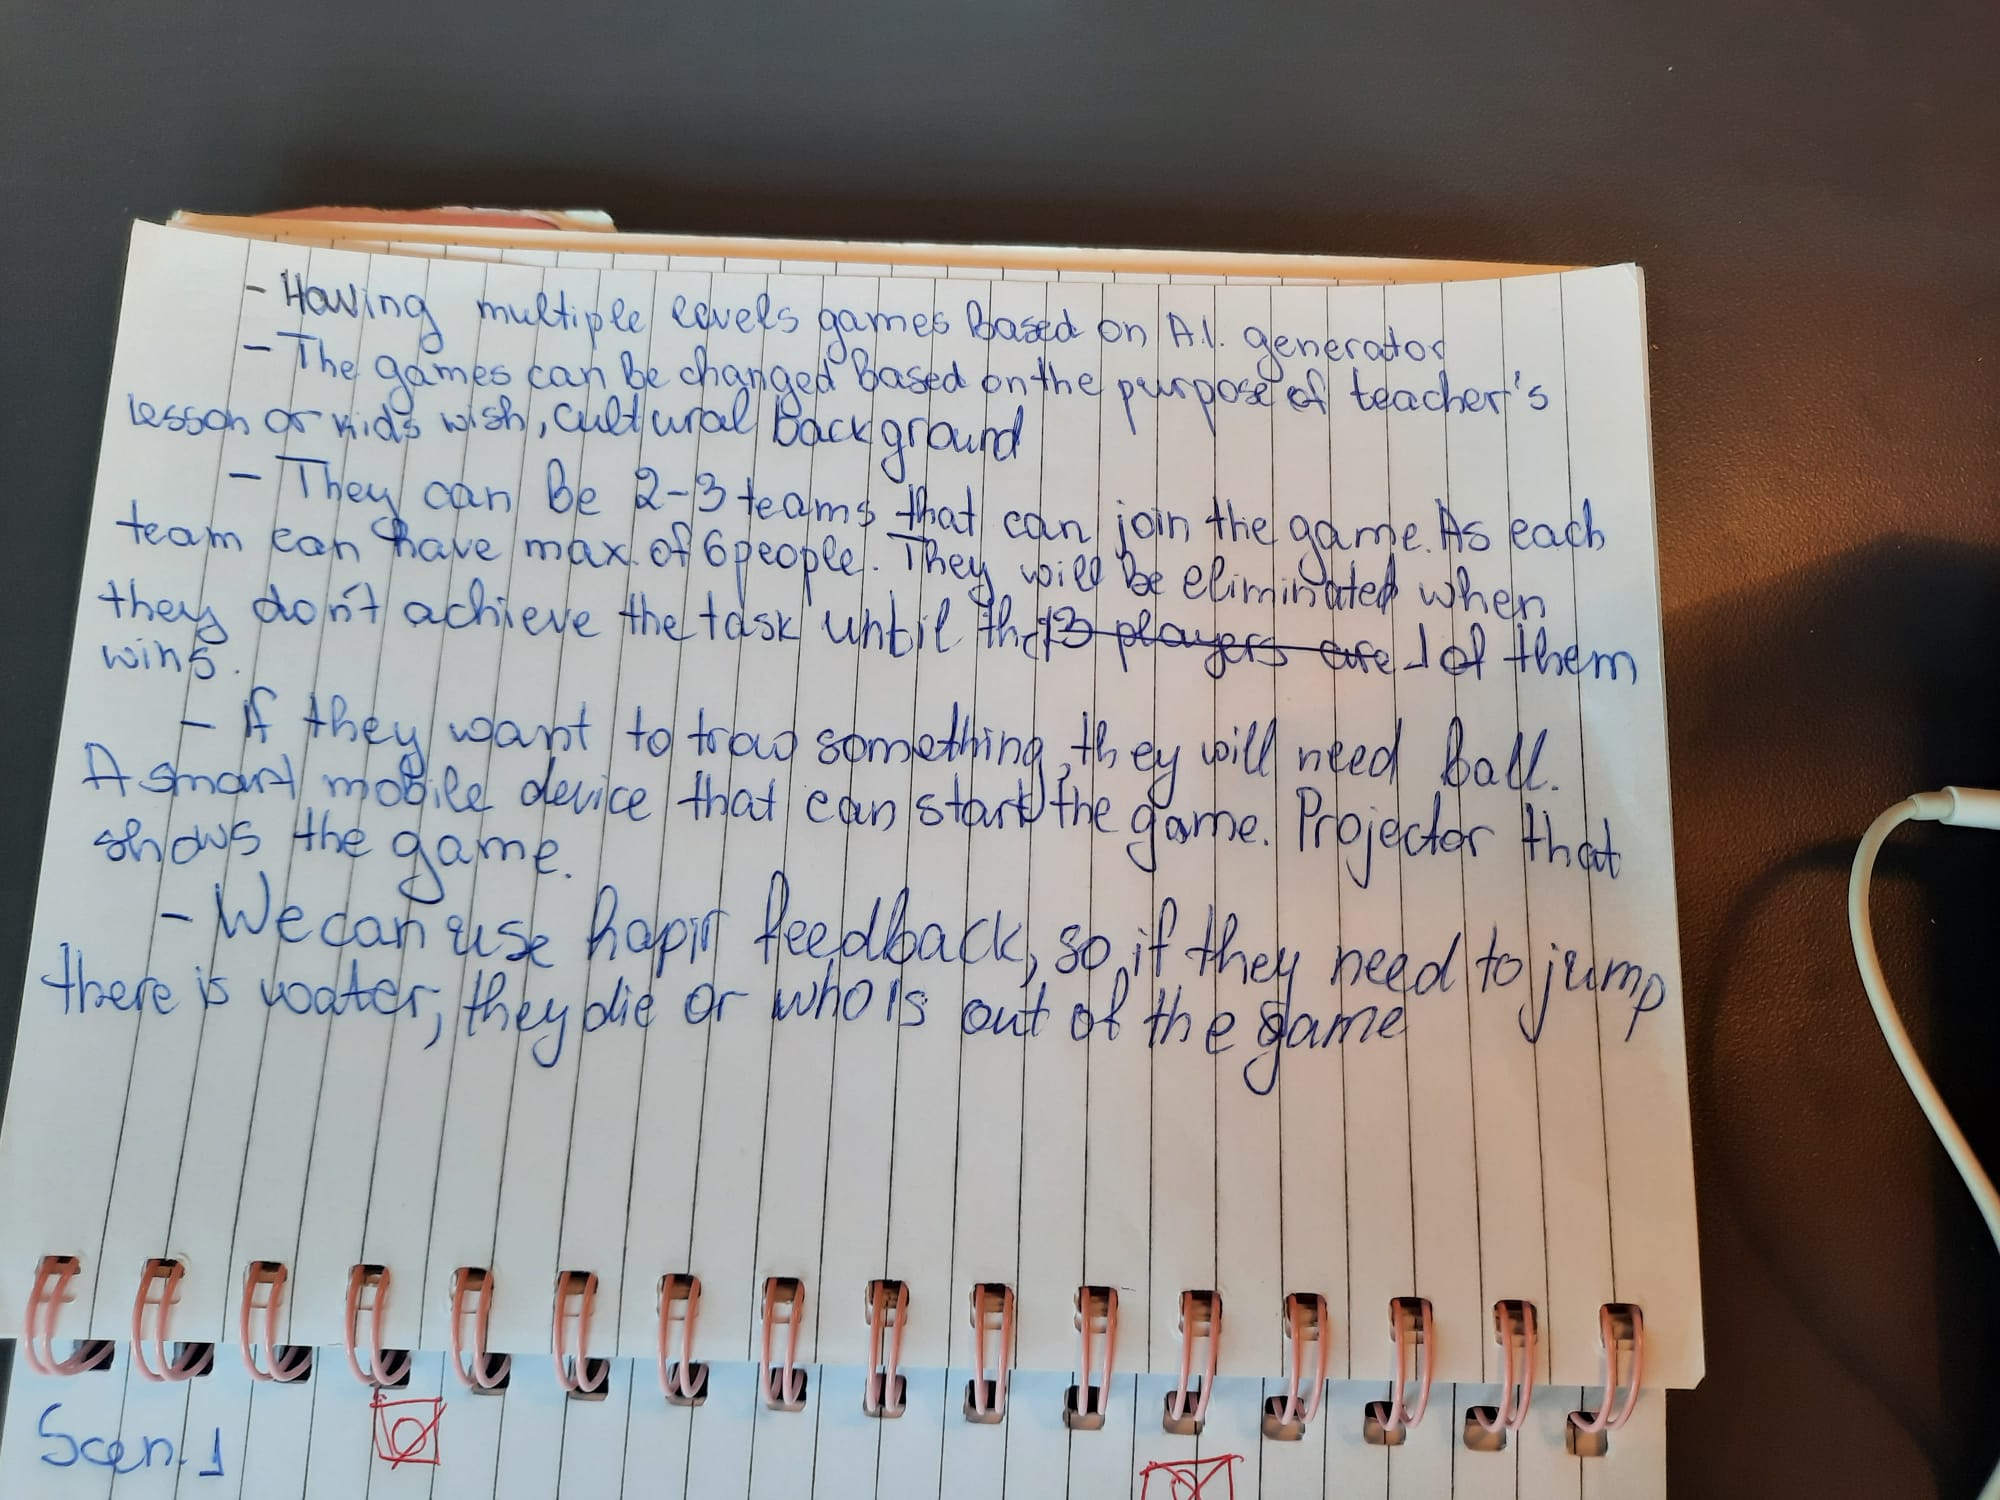 - Having multiple levels games Based on A.I. generator
- The games can Be changed Based on the purpose of teacher's
lesson or kids wish, cultural background
- They can Be 2-3 teams that can join the game. As each
team can have max. of 6 people. They will be eliminated when
they don't achieve the task until the 13 players are 1 of them
wins.
- If they want to trow something, they will need Ball.
A smart mobile device that can start the game. Projector that
shows the game.
- We can use hapir feedback, so, if they need to jump
there is water, they die or who is out of the game
Scen. 1